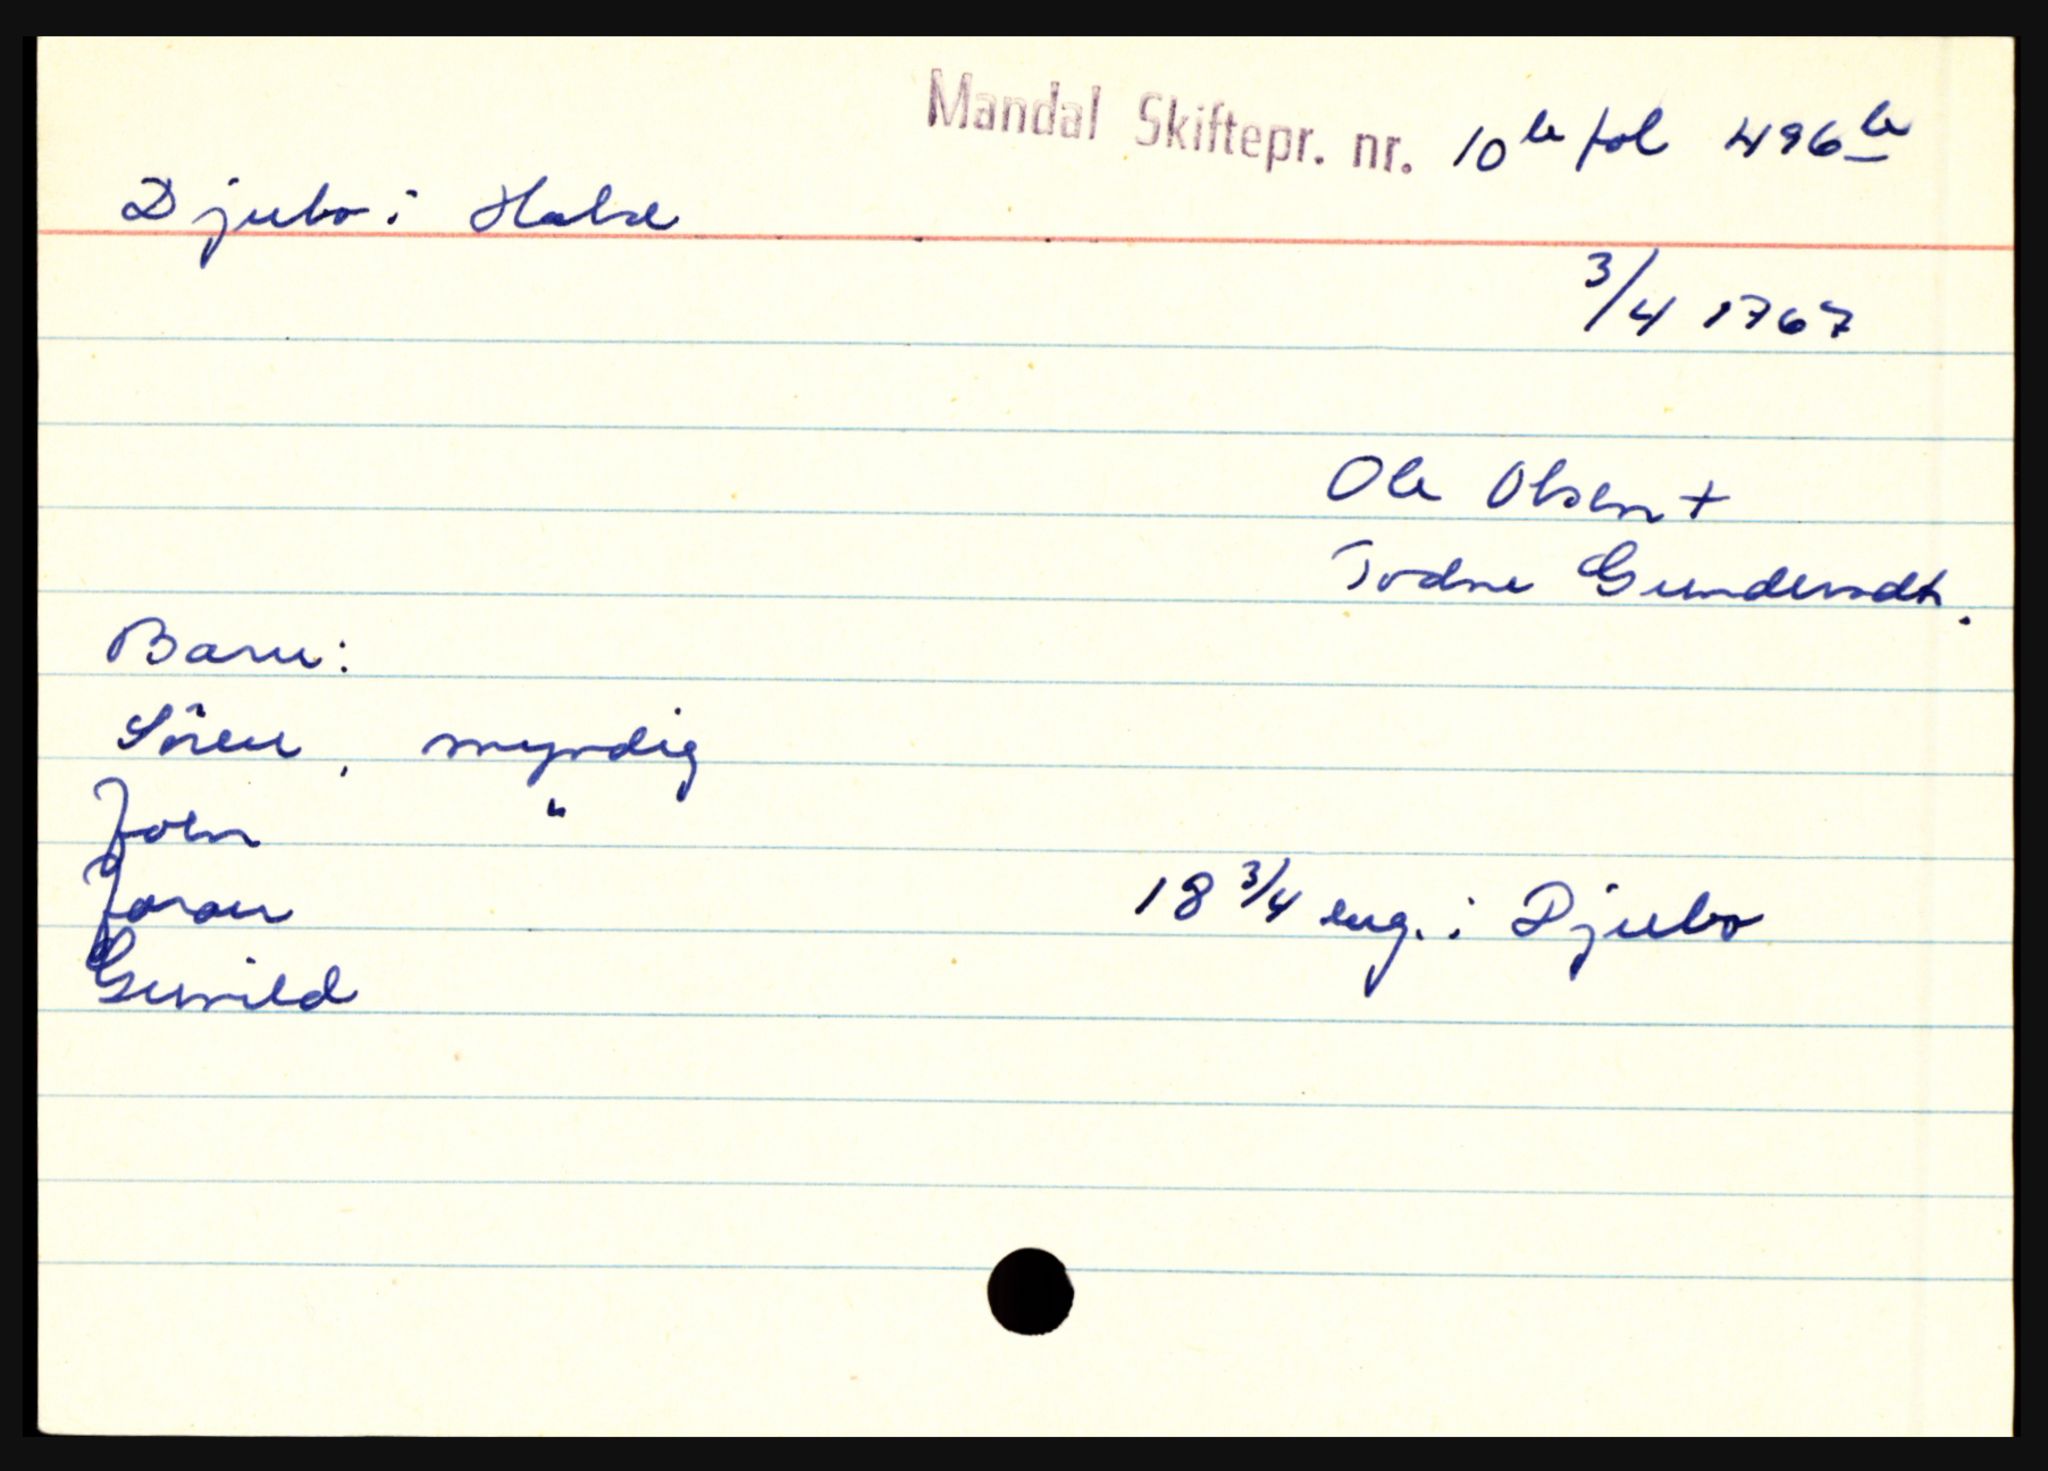 Mandal Skiftepr. nr. 10 b fol 496 b
Djubo i Halse
3/4 1767
Ole Olsen +
Todne Gundersdt.
Barn:
Sören, myndig
Joen "
Joran
18 3/4 eng. i Djubo
Gunild